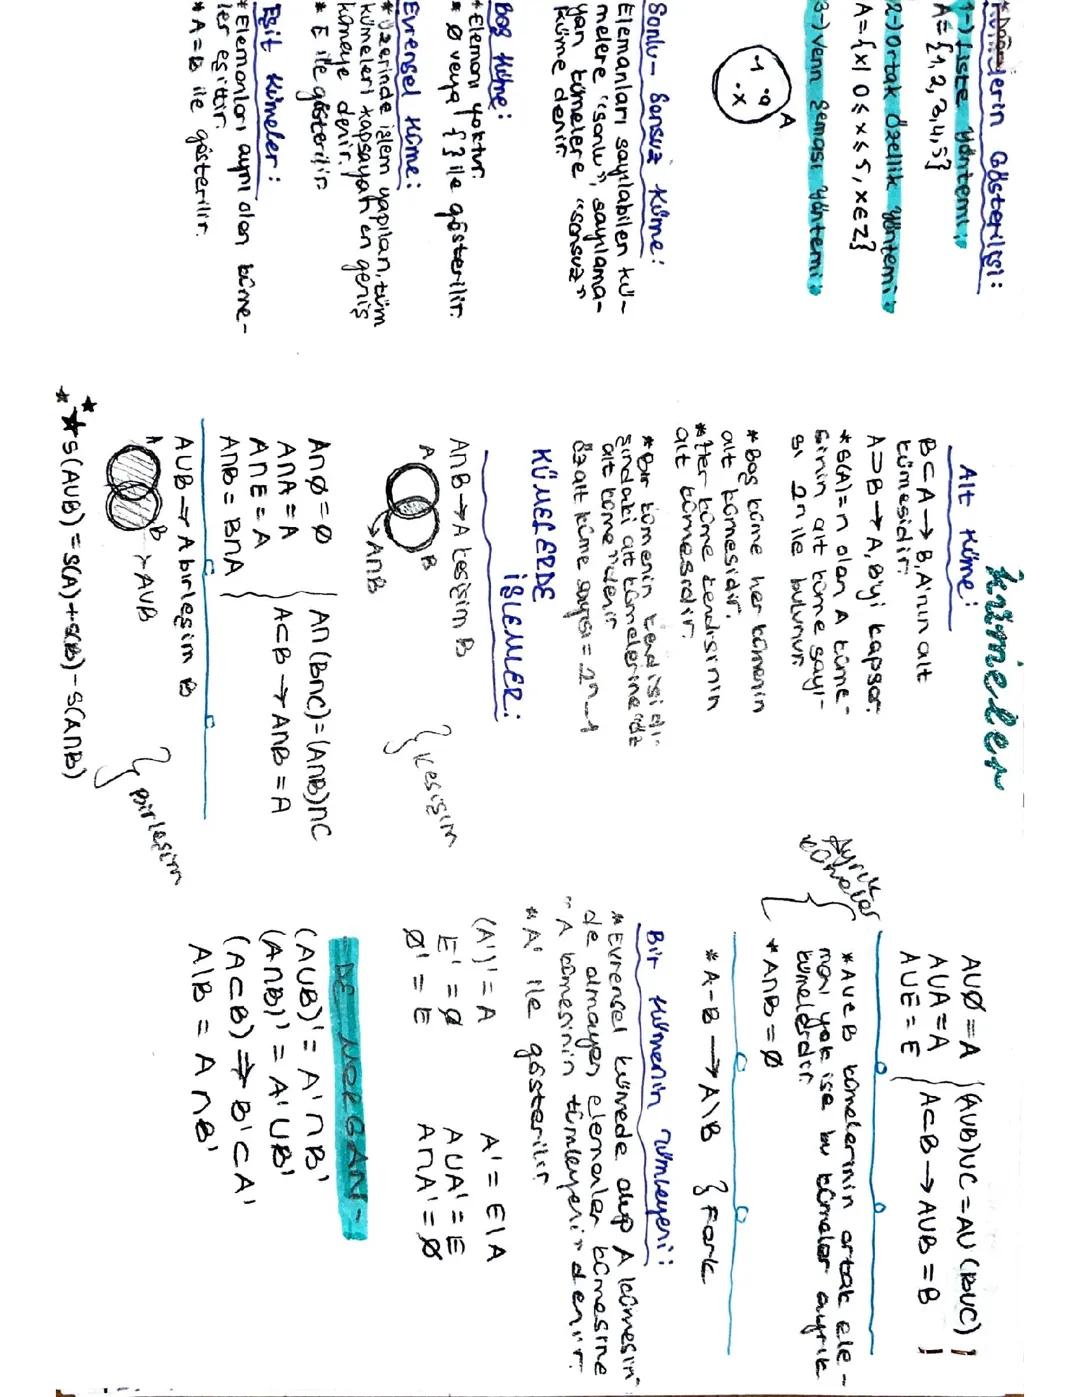 kümeler
Kümelerin Gösterilişi:
1-) Liste yöntemi:
A={1,2,3,4,5}
2-) Ortak özellik yöntemi:
A={x| 0≤x≤5, x∈Z}
3-) Venn şeması yöntemi:
A
Sonlu- Sonsuz Küme:
Elemanları sayılabilen kü-
melere "sonlu", sayılama-
yan kümelere "sonsuz"
küme denir.
Boş Küme:
*Elemanı yoktur.
*Ø veya { } ile gösterilir.
Evrensel Küme:
*Üzerinde işlem yapılan, tüm
kümeleri kapsayan en geniş
kümeye denir.
* E ile gösterilir.
Eşit Kümeler:
*Elemanları aynı olan küme-
ler eşittir.
*A=B ile gösterilir.
Alt Küme:
B⊂A→B, A'nın alt
kümesidir.
A⊃B→A, B'yi kapsar.
*s(A)=n olan A küme-
sinin alt küme sayı-
sı 2n ile bulunur.
*Boş küme her kümenin
alt kümesidir.
*Her küme kendisinin
alt kümesidir.
*Bir kümenin kendisi dı-
şındaki alt kümelerine "öz
alt küme" denir.
özalt küme sayısı = 2n-1
KÜMELERDE
İŞLEMLER:
A∩B→A kesişim B
A B
→A∩B
} Kesişim
A∩Ø=Ø
A∩A=A
A∩E=A
A∩B=B∩A
A∩(B∩C)=(A∩B)∩C
A⊂B→A∩B=A
AUB→A birleşim B
A B →AUB
} Birleşim
**s(AUB)=s(A)+s(B)-s(A∩B)
AUØ=A
AUA=A
AUE=E
(AUB)UC=AU(BUC)
A⊂B→AUB=B
Ayrık
kümeler
*A ve B kümelerinin ortak ele-
manı yok ise bu kümeler ayrık
kümelerdir.
*A∩B=Ø
*A-B→A\B } Fark
Bir Kümenin Tümleyeni:
*Evrensel kümede olup A kümesin-
de olmayan elemanlar kümesine
"A kümesinin tümleyeni" denir.
*A' ile gösterilir.
(A')'=A
E'=Ø
Ø'=E
A'=E\A
AUA'=E
A∩A'=Ø
DE MORGAN-
(AUB)'=A'∩B'
(A∩B)'=A'UB'
(A⊂B)⇒B'⊂A'
A\B=A∩B'